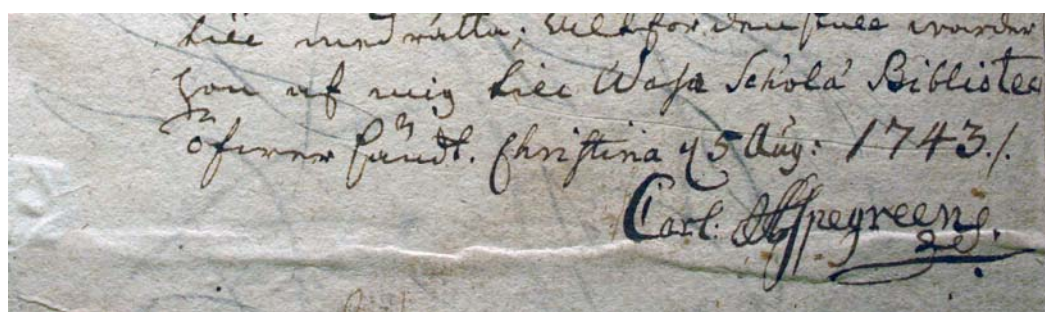 till med rätta; Altfördenskull warder
hon af mig till Wasa Schola Bibliotec
öfwersändt. Christina d 5 Aug: 1743./.
Carl: Aspegreen